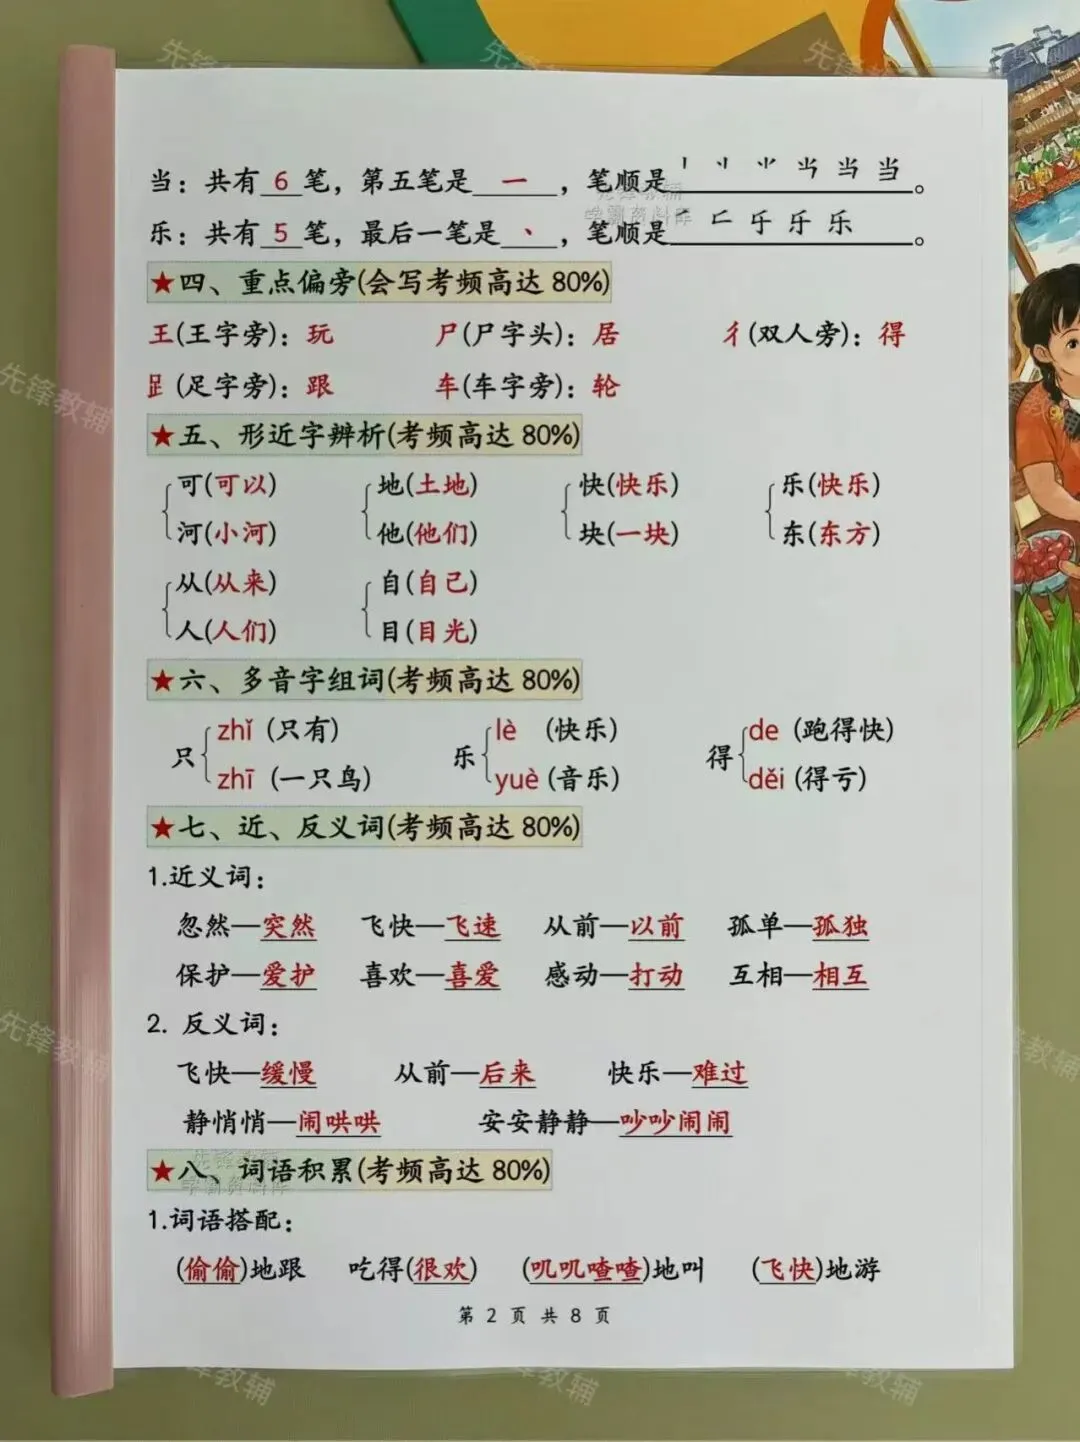 当：共有 6 笔，第五笔是 一 ，笔顺是 丨 。
乐：共有 5 笔，最后一笔是 丶 ，笔顺是 乐 。
★四、重点偏旁(会写考频高达 80%)
王(王字旁)：玩 尸(尸字头)：居 彳(双人旁)：得
𧾷(足字旁)：跟 车(车字旁)：轮
★五、形近字辨析(考频高达 80%)
可(可以) 地(土地) 快(快乐) 乐(快乐)
河(小河) 他(他们) 块(一块) 东(东方)
从(从来) 自(自己)
人(人们) 目(目光)
★六、多音字组词(考频高达 80%)
只 zhǐ (只有) 乐 lè (快乐) 得 de (跑得快)
zhī (一只鸟) yuè (音乐) děi (得亏)
★七、近、反义词(考频高达 80%)
1.近义词：
忽然—突然 飞快—飞速 从前—以前 孤单—孤独
保护—爱护 喜欢—喜爱 感动—打动 互相—相互
2. 反义词：
飞快—缓慢 从前—后来 快乐—难过
静悄悄—闹哄哄 安安静静—吵吵闹闹
★八、词语积累(考频高达 80%)
1.词语搭配：
(偷偷)地跟 吃得(很欢) (叽叽喳喳)地叫 (飞快)地游
第 2 页 共 8 页
先锋教辅
学霸资料库